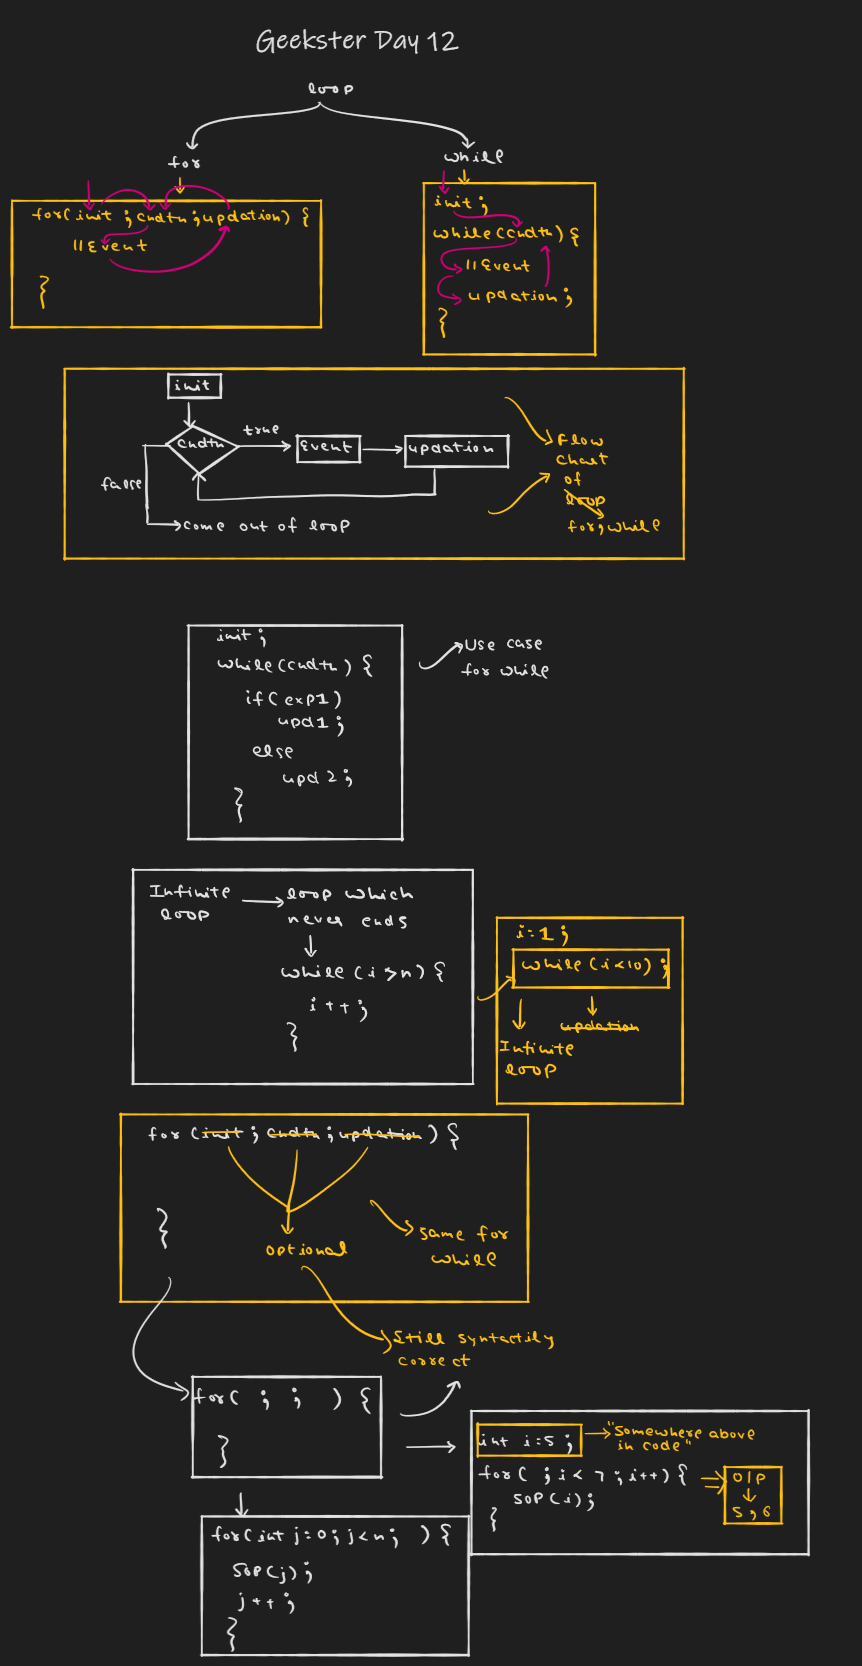 Geekster Day 12
loop
for
while
for(init ; cndtn ; updation) {
//Event
}
init ;
while(cndtn) {
//Event
updation ;
}
init
cndtn
true
Event
updation
false
come out of loop
Flow
chart
of
loop
for, while
init ;
while(cndtn) {
if(exp1)
upd1 ;
else
upd2 ;
}
Use case
for while
Infinite
loop
loop which
never ends
while (i>n) {
i++ ;
}
i=1 ;
while (i<10) ;
updation
Infinite
loop
for (init ; cndtn ; updation) {
}
optional
same for
while
Still syntactily
correct
for( ; ; ) {
}
int i=5 ;
"Somewhere above
in code"
for( ; i< 7 ; i++) {
SOP(i) ;
}
O/P
5, 6
for(int j=0 ; j<n ; ) {
SOP(j) ;
j++ ;
}